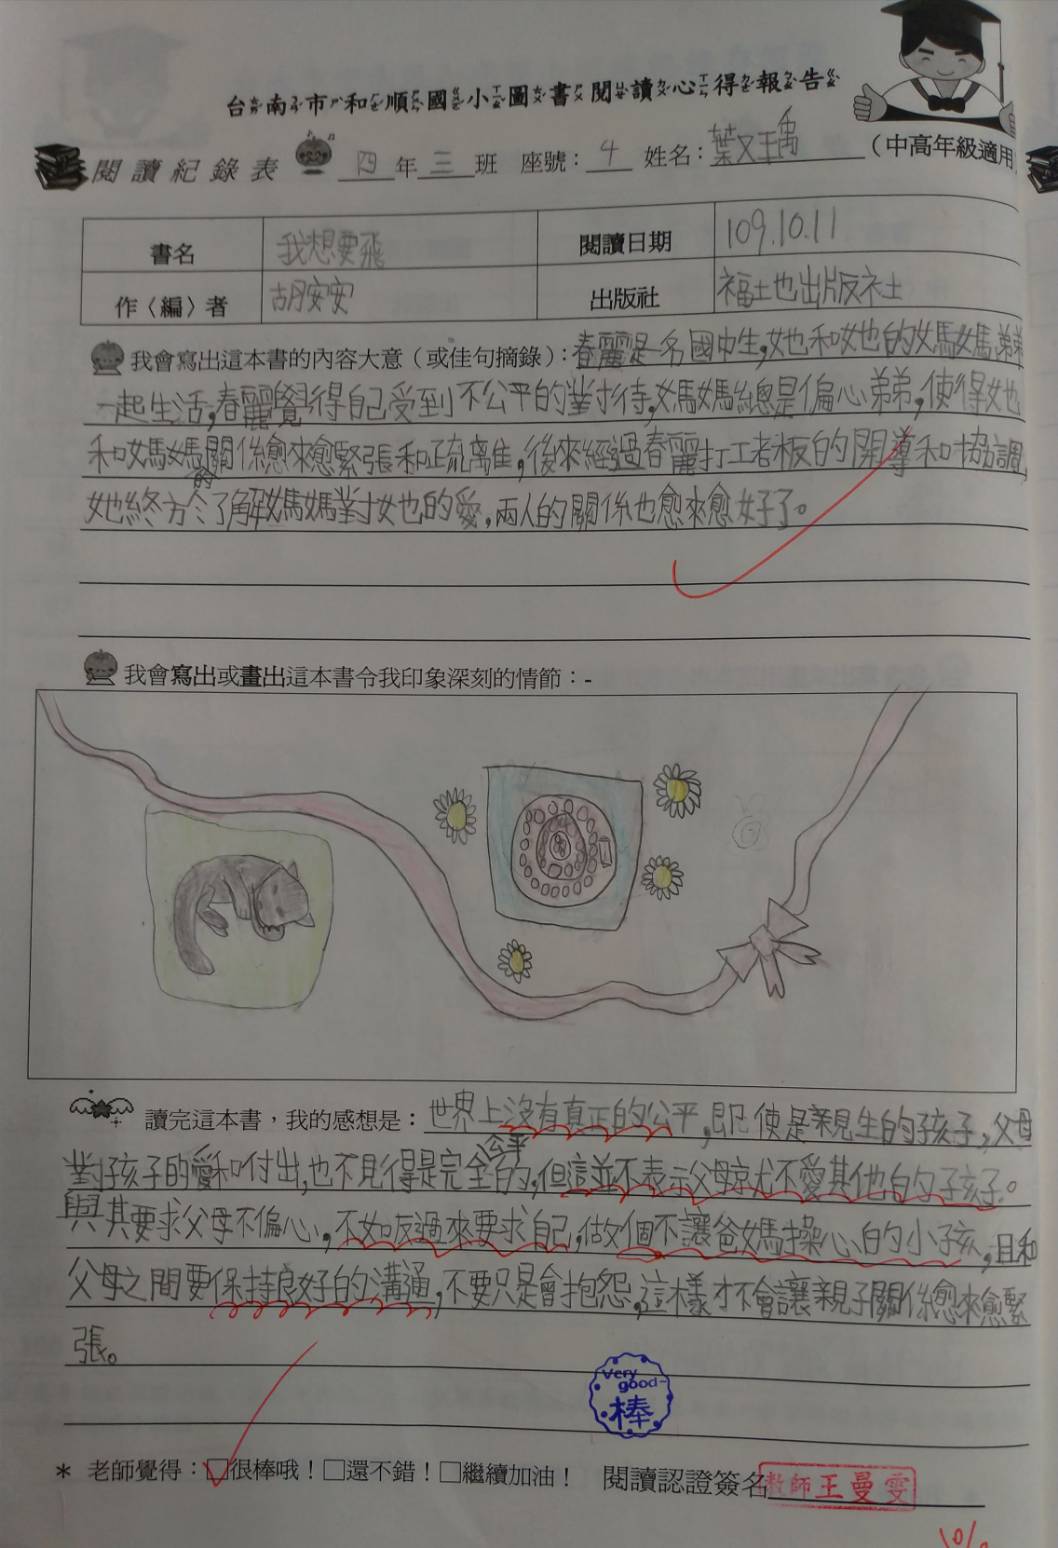 台南市和順國小圖書閱讀心得報告
閱讀紀錄表 四年三班 座號：4 姓名：葉又瑀（中高年級適用
書名 我想要飛 閱讀日期 109.10.11
作〈編〉者 胡安安 出版社 福地出版社
我會寫出這本書的內容大意（或佳句摘錄）：春麗是名國中生，她和她的媽媽弟弟
一起生活，春麗覺得自己受到不公平的對待，媽媽總是偏心弟弟，使得她
和媽媽的關係愈來愈緊張和疏離，後來經過春麗打工老板的開導和協調，
她終於了解媽媽對她的愛，兩人的關係也愈來愈好了。
我會寫出或畫出這本書令我印象深刻的情節：-
讀完這本書，我的感想是：世界上沒有真正的公平，即使是親生的孩子，父母
對孩子的愛和付出，也不見得是完全公平的，但這並不表示父母就不愛其他的孩子。
與其要求父母不偏心，不如反過來要求自己，做個不讓爸媽操心的小孩，且和
父母之間要保持良好的溝通，不要只是會抱怨，這樣才不會讓親子關係愈來愈緊
張。
Very good 棒
* 老師覺得：□很棒哦！□還不錯！□繼續加油！ 閱讀認證簽名 教師王曼雯
10/